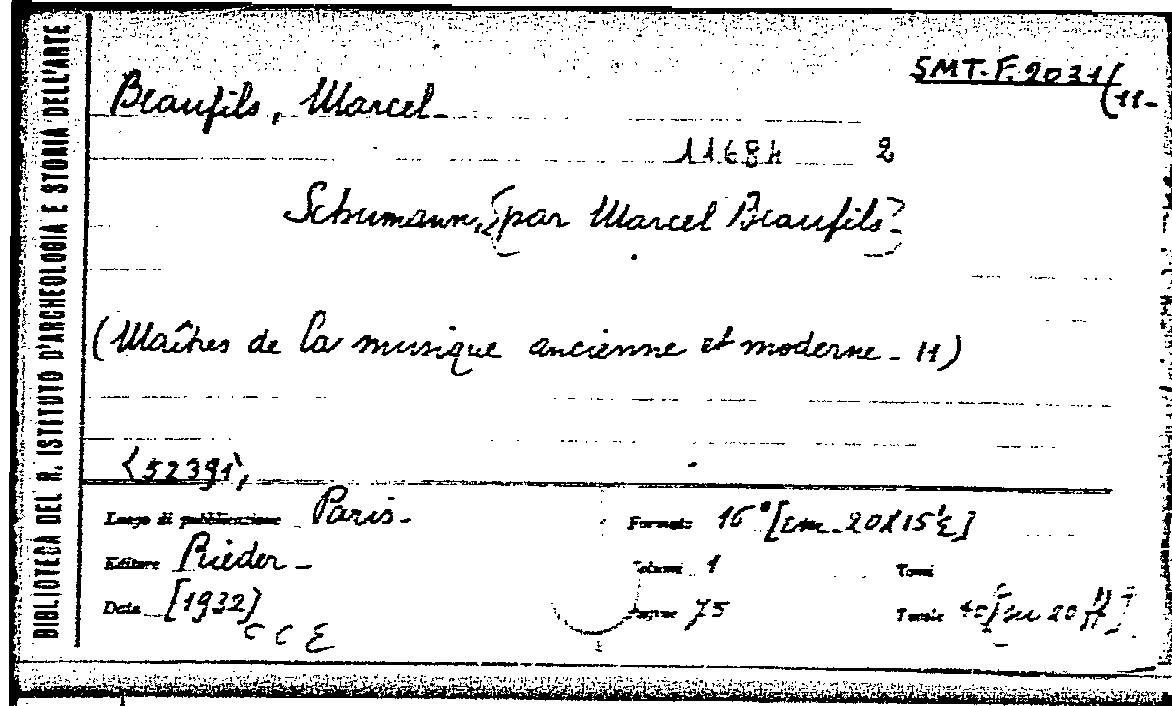 BIBLIOTECA DEL R. ISTITUTO D'ARCHEOLOGIA E STORIA DELL'ARTE
SMT.F.2031/(11-
Beaufils, Marcel-
11684 2
Schumann, [par Marcel Beaufils]-
(Maîtres de la musique ancienne et moderne - 11)
<52391>,
Luogo di pubblicazione Paris.
Formato 16° [cm. 20X15
Editore Rieder-
Volumi 1 Tomi
Data [1932]
Pagine 75 Tavole 40 [su 20
C C E